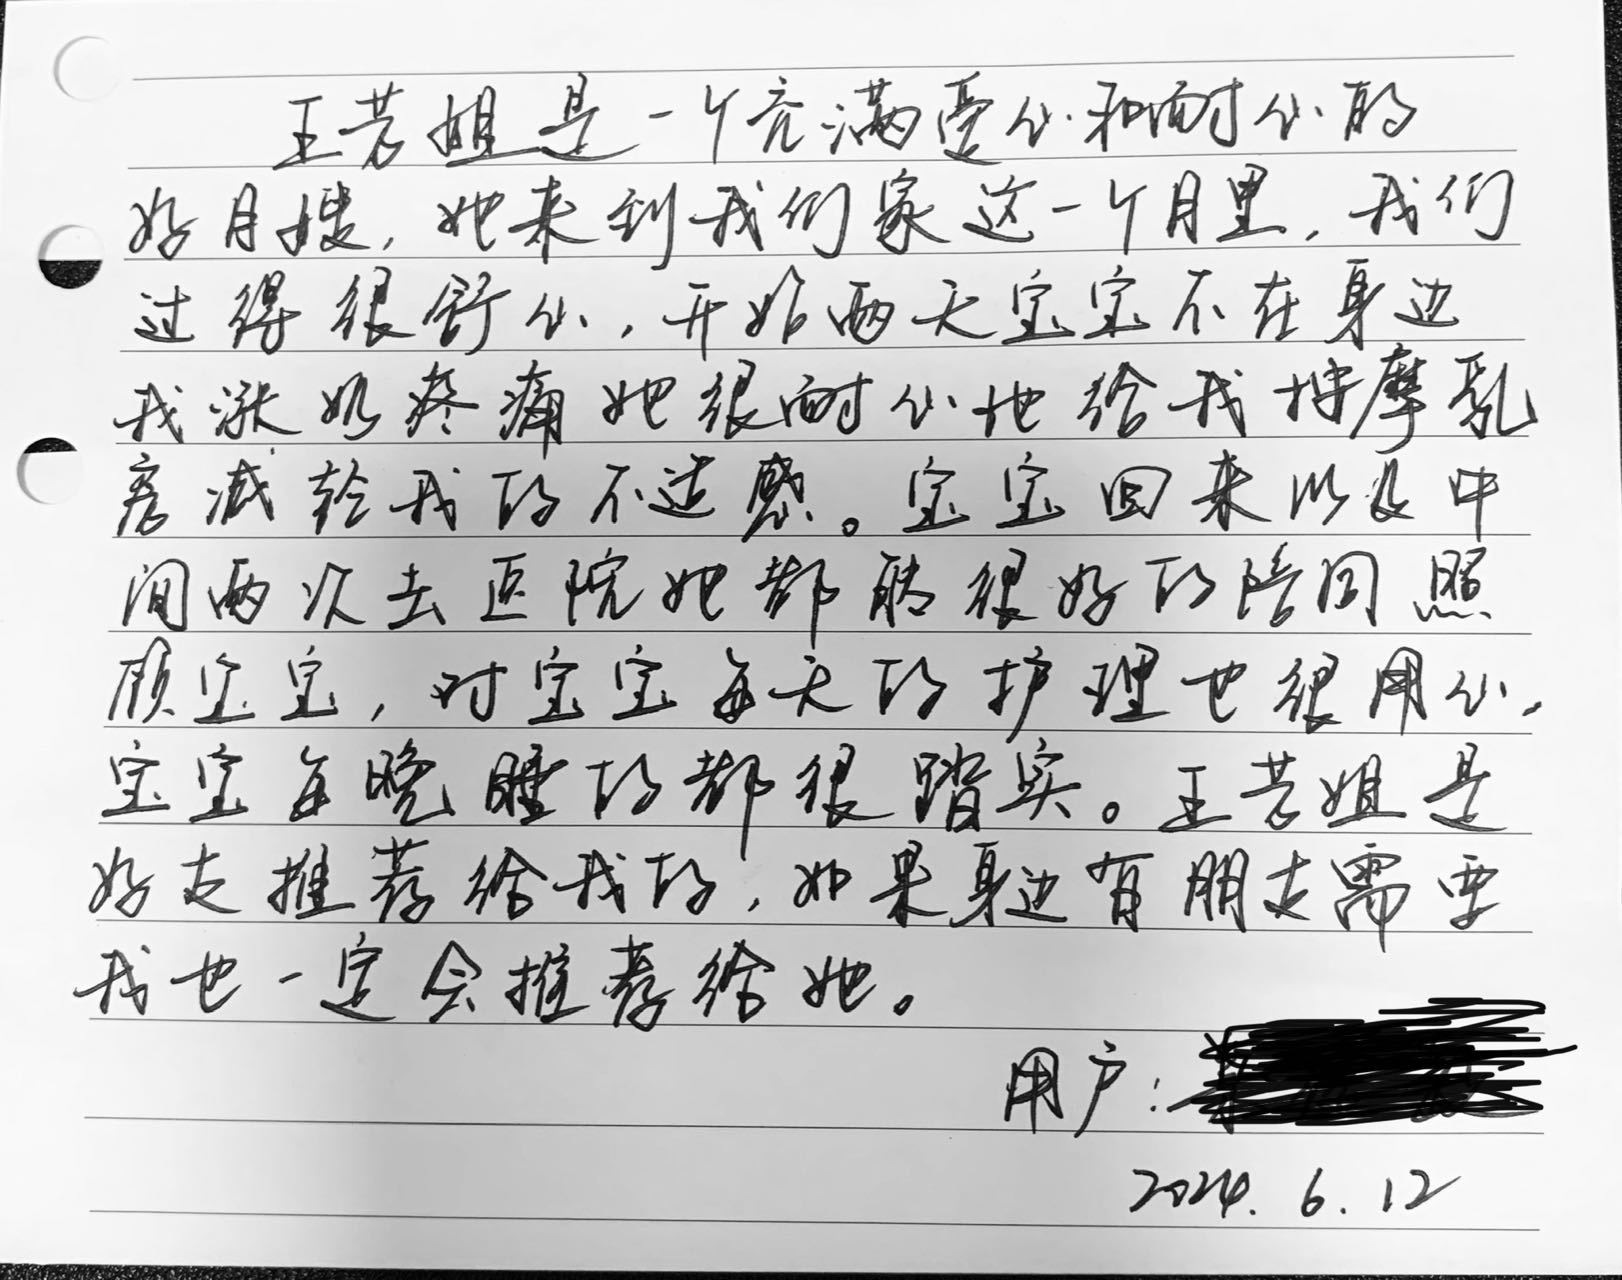 王芳姐是一个充满爱心和耐心的
好月嫂，她来到我们家这一个月里，我们
过得很舒心，开始两天宝宝不在身边
我涨奶疼痛她很耐心地给我按摩乳
房减轻我的不适感。宝宝回来以及中
间两次去医院她都能很好的陪同照
顾宝宝，对宝宝每天的护理也很用心，
宝宝每晚睡的都很踏实。王芳姐是
好友推荐给我的，如果身边有朋友需要
我也一定会推荐给她。
用户：
2024.6.12